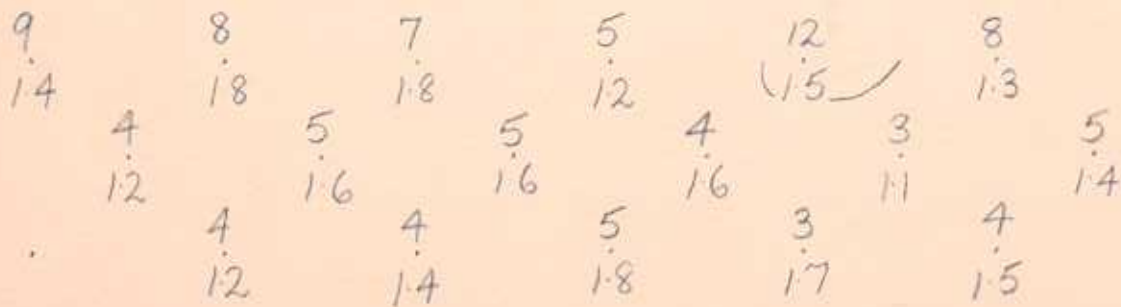 9 8 7 5 12 8
1.4 1.8 1.8 1.2 1.5 1.3
4 5 5 4 3 5
1.2 1.6 1.6 1.6 1.1 1.4
4 4 5 3 4
1.2 1.4 1.8 1.7 1.5